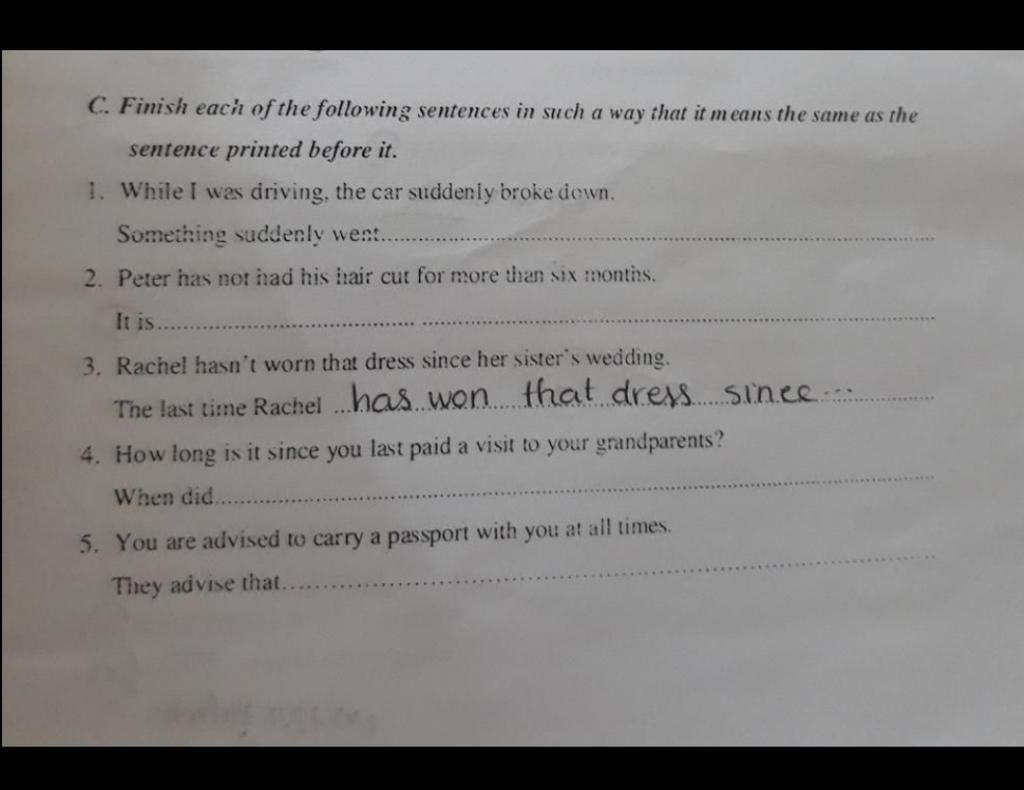 C. Finish each of the following sentences in such a way that it means the same as the
sentence printed before it.
1. While I was driving, the car suddenly broke down.
Something suddenly went................................................
2. Peter has not had his hair cut for more than six months.
It is................................................
3. Rachel hasn't worn that dress since her sister's wedding.
The last time Rachel ...has won that dress since...
4. How long is it since you last paid a visit to your grandparents?
When did................................................
5. You are advised to carry a passport with you at all times.
They advise that................................................